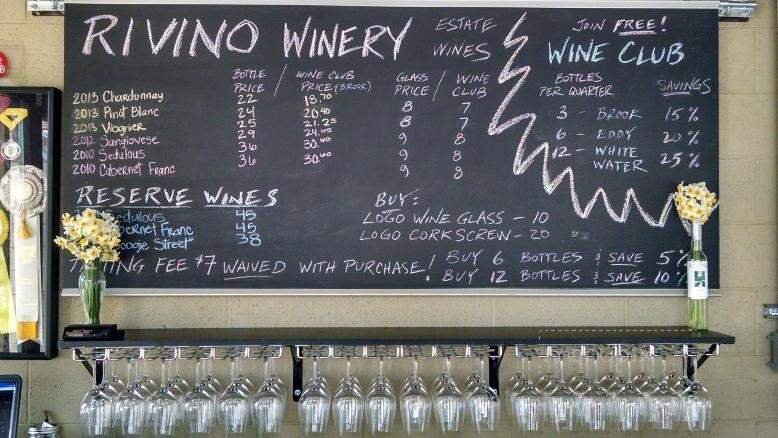 RIVINO WINERY
ESTATE WINES
BOTTLE PRICE / WINE CLUB PRICE (BROOK) GLASS PRICE / WINE CLUB
2013 Chardonnay 22 18.70 8 7
2013 Pinot Blanc 24 20.40 8 7
2013 Viognier 25 21.25 8 7
2012 Sangiovese 29 24.65 9 8
2010 Sedulous 36 30.60 9 8
2010 Cabernet Franc 36 30.60 9 8
RESERVE WINES
Sedulous 45
Cabernet Franc 45
Street" 38
BUY:
LOGO WINE GLASS - 10
LOGO CORKSCREW - 20
TASTING FEE $7 WAIVED WITH PURCHASE!
BUY 6 BOTTLES & SAVE 5%
BUY 12 BOTTLES & SAVE 10%
JOIN FREE!
WINE CLUB
BOTTLES PER QUARTER SAVINGS
3 - BROOK 15%
6 - EDDY 20%
12 - WHITE WATER 25%